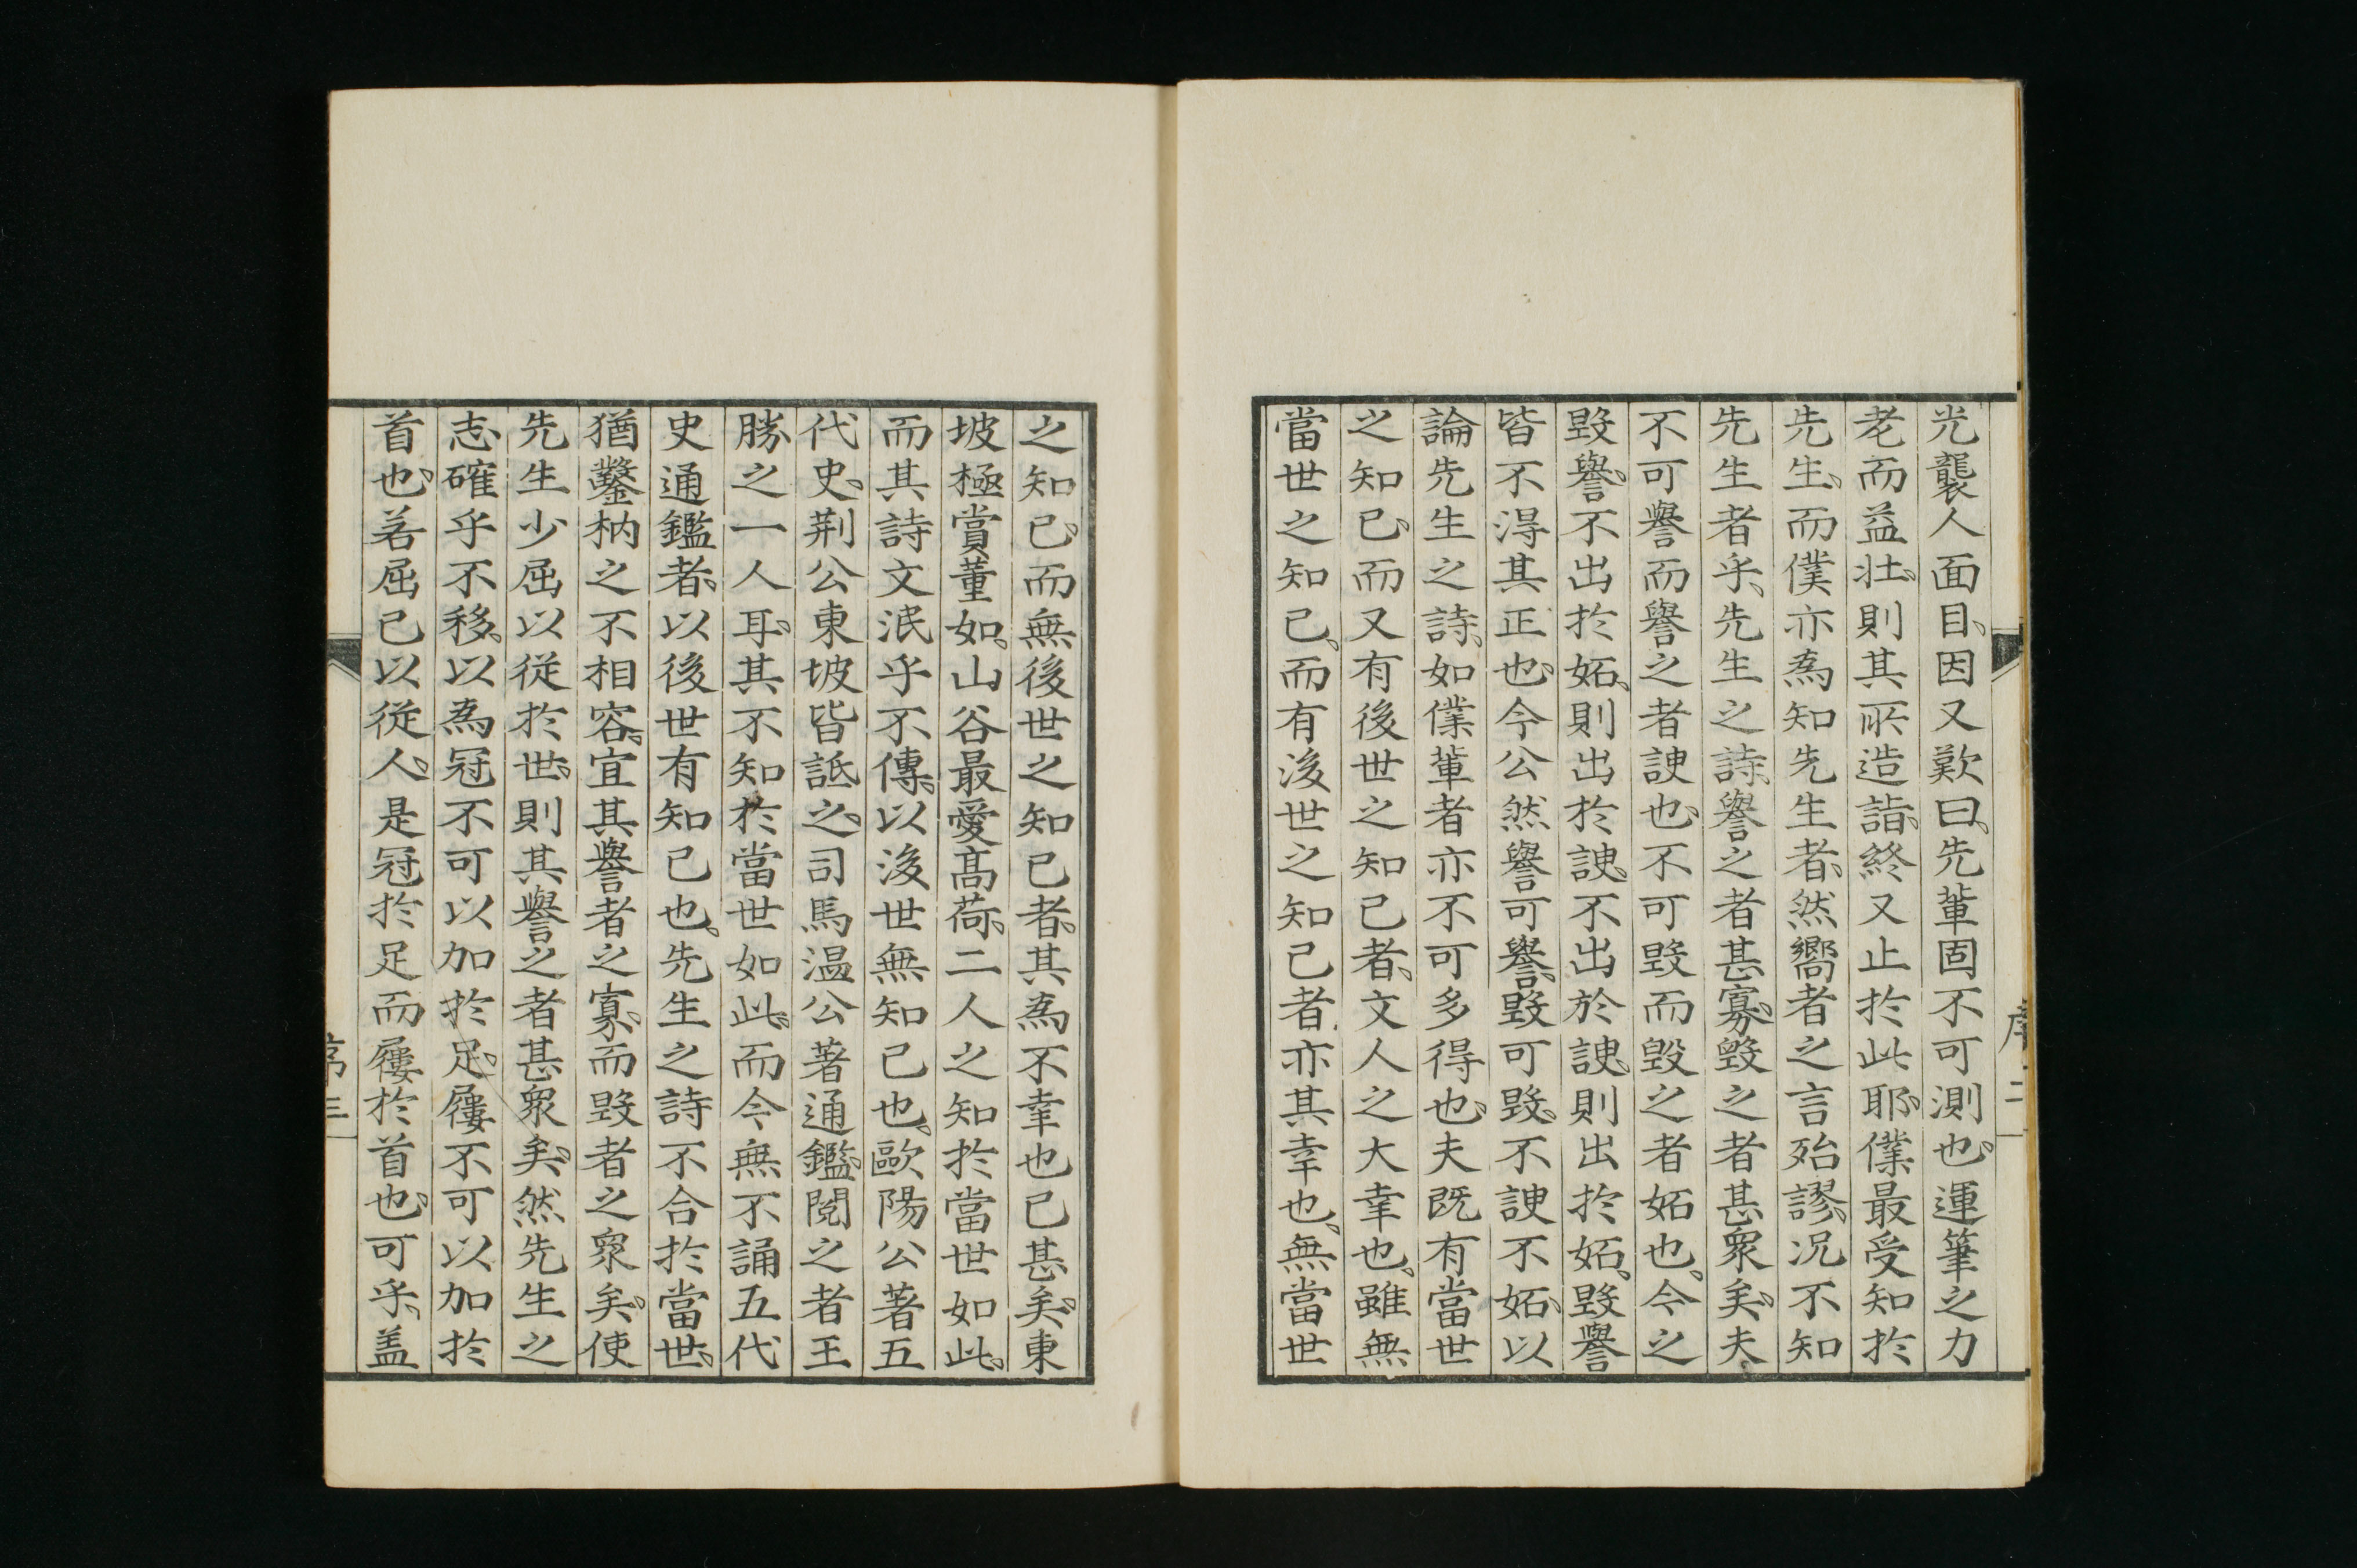 光襲人面目、因又歎曰、先輩固不可測也、運筆之力
老而益壯、則其所造詣、終又止於此耶、僕最受知於
先生、而僕亦為知先生者、然嚮者之言殆謬、况不知
先生者乎、先生之詩、譽之者甚寡、毀之者甚衆矣、夫
不可譽而譽之者諛也、不可毀而毀之者妬也、今之
毀譽、不出於妬、則出於諛、不出於諛、則出於妬、毀譽
皆不得其正也、今公然譽可譽、毀可毀、不諛不妬、以
論先生之詩、如僕輩者亦不可多得也、夫既有當世
之知己、而又有後世之知己者、文人之大幸也、雖無
當世之知己、而有後世之知己者、亦其幸也、無當世
之知己、而無後世之知己者、其為不幸也已甚矣、東
坡極賞董如、山谷最愛高荷、二人之知於當世如此、
而其詩文泯乎不傳、以後世無知己也、歐陽公著五
代史、荆公東坡皆詆之、司馬温公著通鑑、閲之者王
勝之一人耳、其不知於當世如此、而今無不誦五代
史通鑑者、以後世有知己也、先生之詩不合於當世、
猶鑿枘之不相容、宜其譽者之寡、而毀者之衆矣、使
先生少屈以從於世、則其譽之者甚衆矣、然先生之
志確乎不移、以為冠不可以加於足、屨不可以加於
首也、若屈己以從人、是冠於足而屨於首也、可乎、盖
序 二
序 三